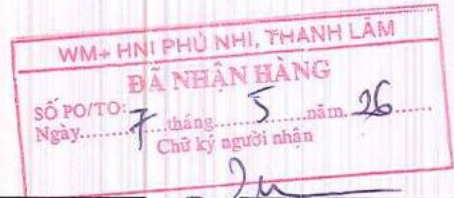 WM+ HNI PHÚ NHI, THANH LÂM
ĐÃ NHẬN HÀNG
SỐ PO/TO:
Ngày.......7....tháng.....5.......năm..26.....
Chữ ký người nhận